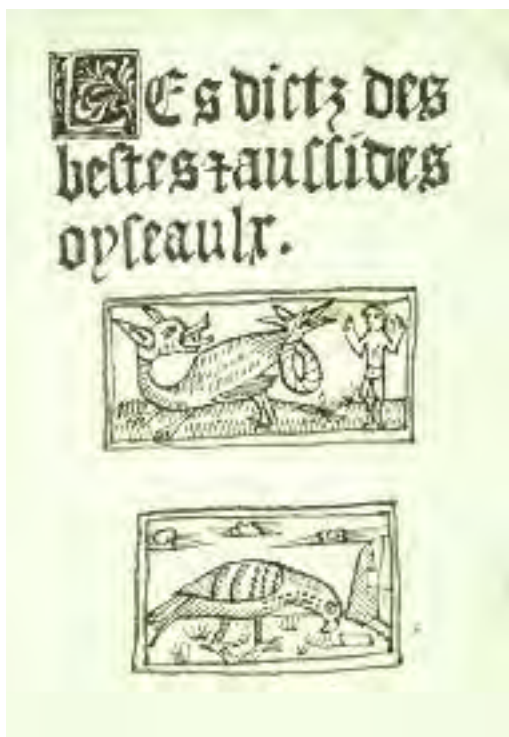 LEs dictz des
bestes ⁊ aussi des
oyseaulx.